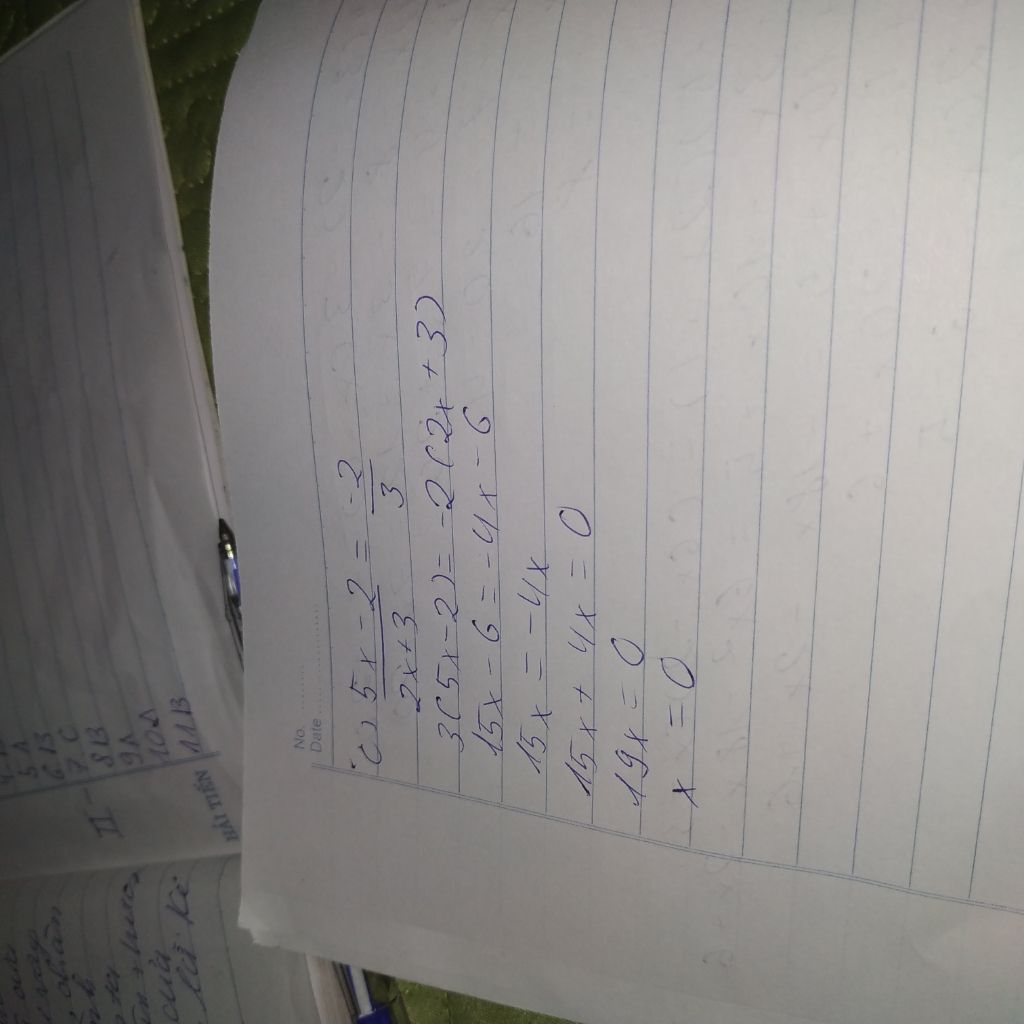 No.
Date
c) 5x - 2 / 2x+3 = -2 / 3
3(5x-2) = -2(2x+3)
15x - 6 = -4x - 6
15x = -4x
15x + 4x = 0
19x = 0
x = 0
5A
6B
7C
8B
9A
10A
11B
II -
HẢI TIẾN